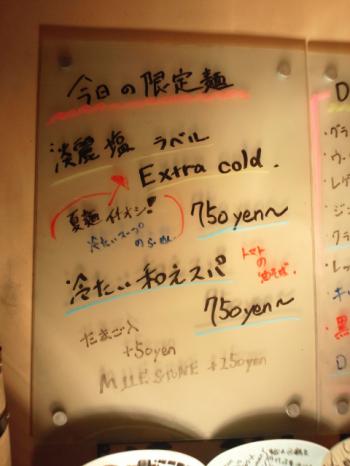 今日の限定麺
淡麗 塩 ラベル
Extra cold.
夏麺 イチオシ!
冷たいスープ
の
750yen～
冷たい 和えスパ
トマト
の
750yen～
たまご入
+50yen
MILESTONE +250yen
D
・グラ
・ウー
・レゲ
・ジン
・クラ
・レッ
・黒
D